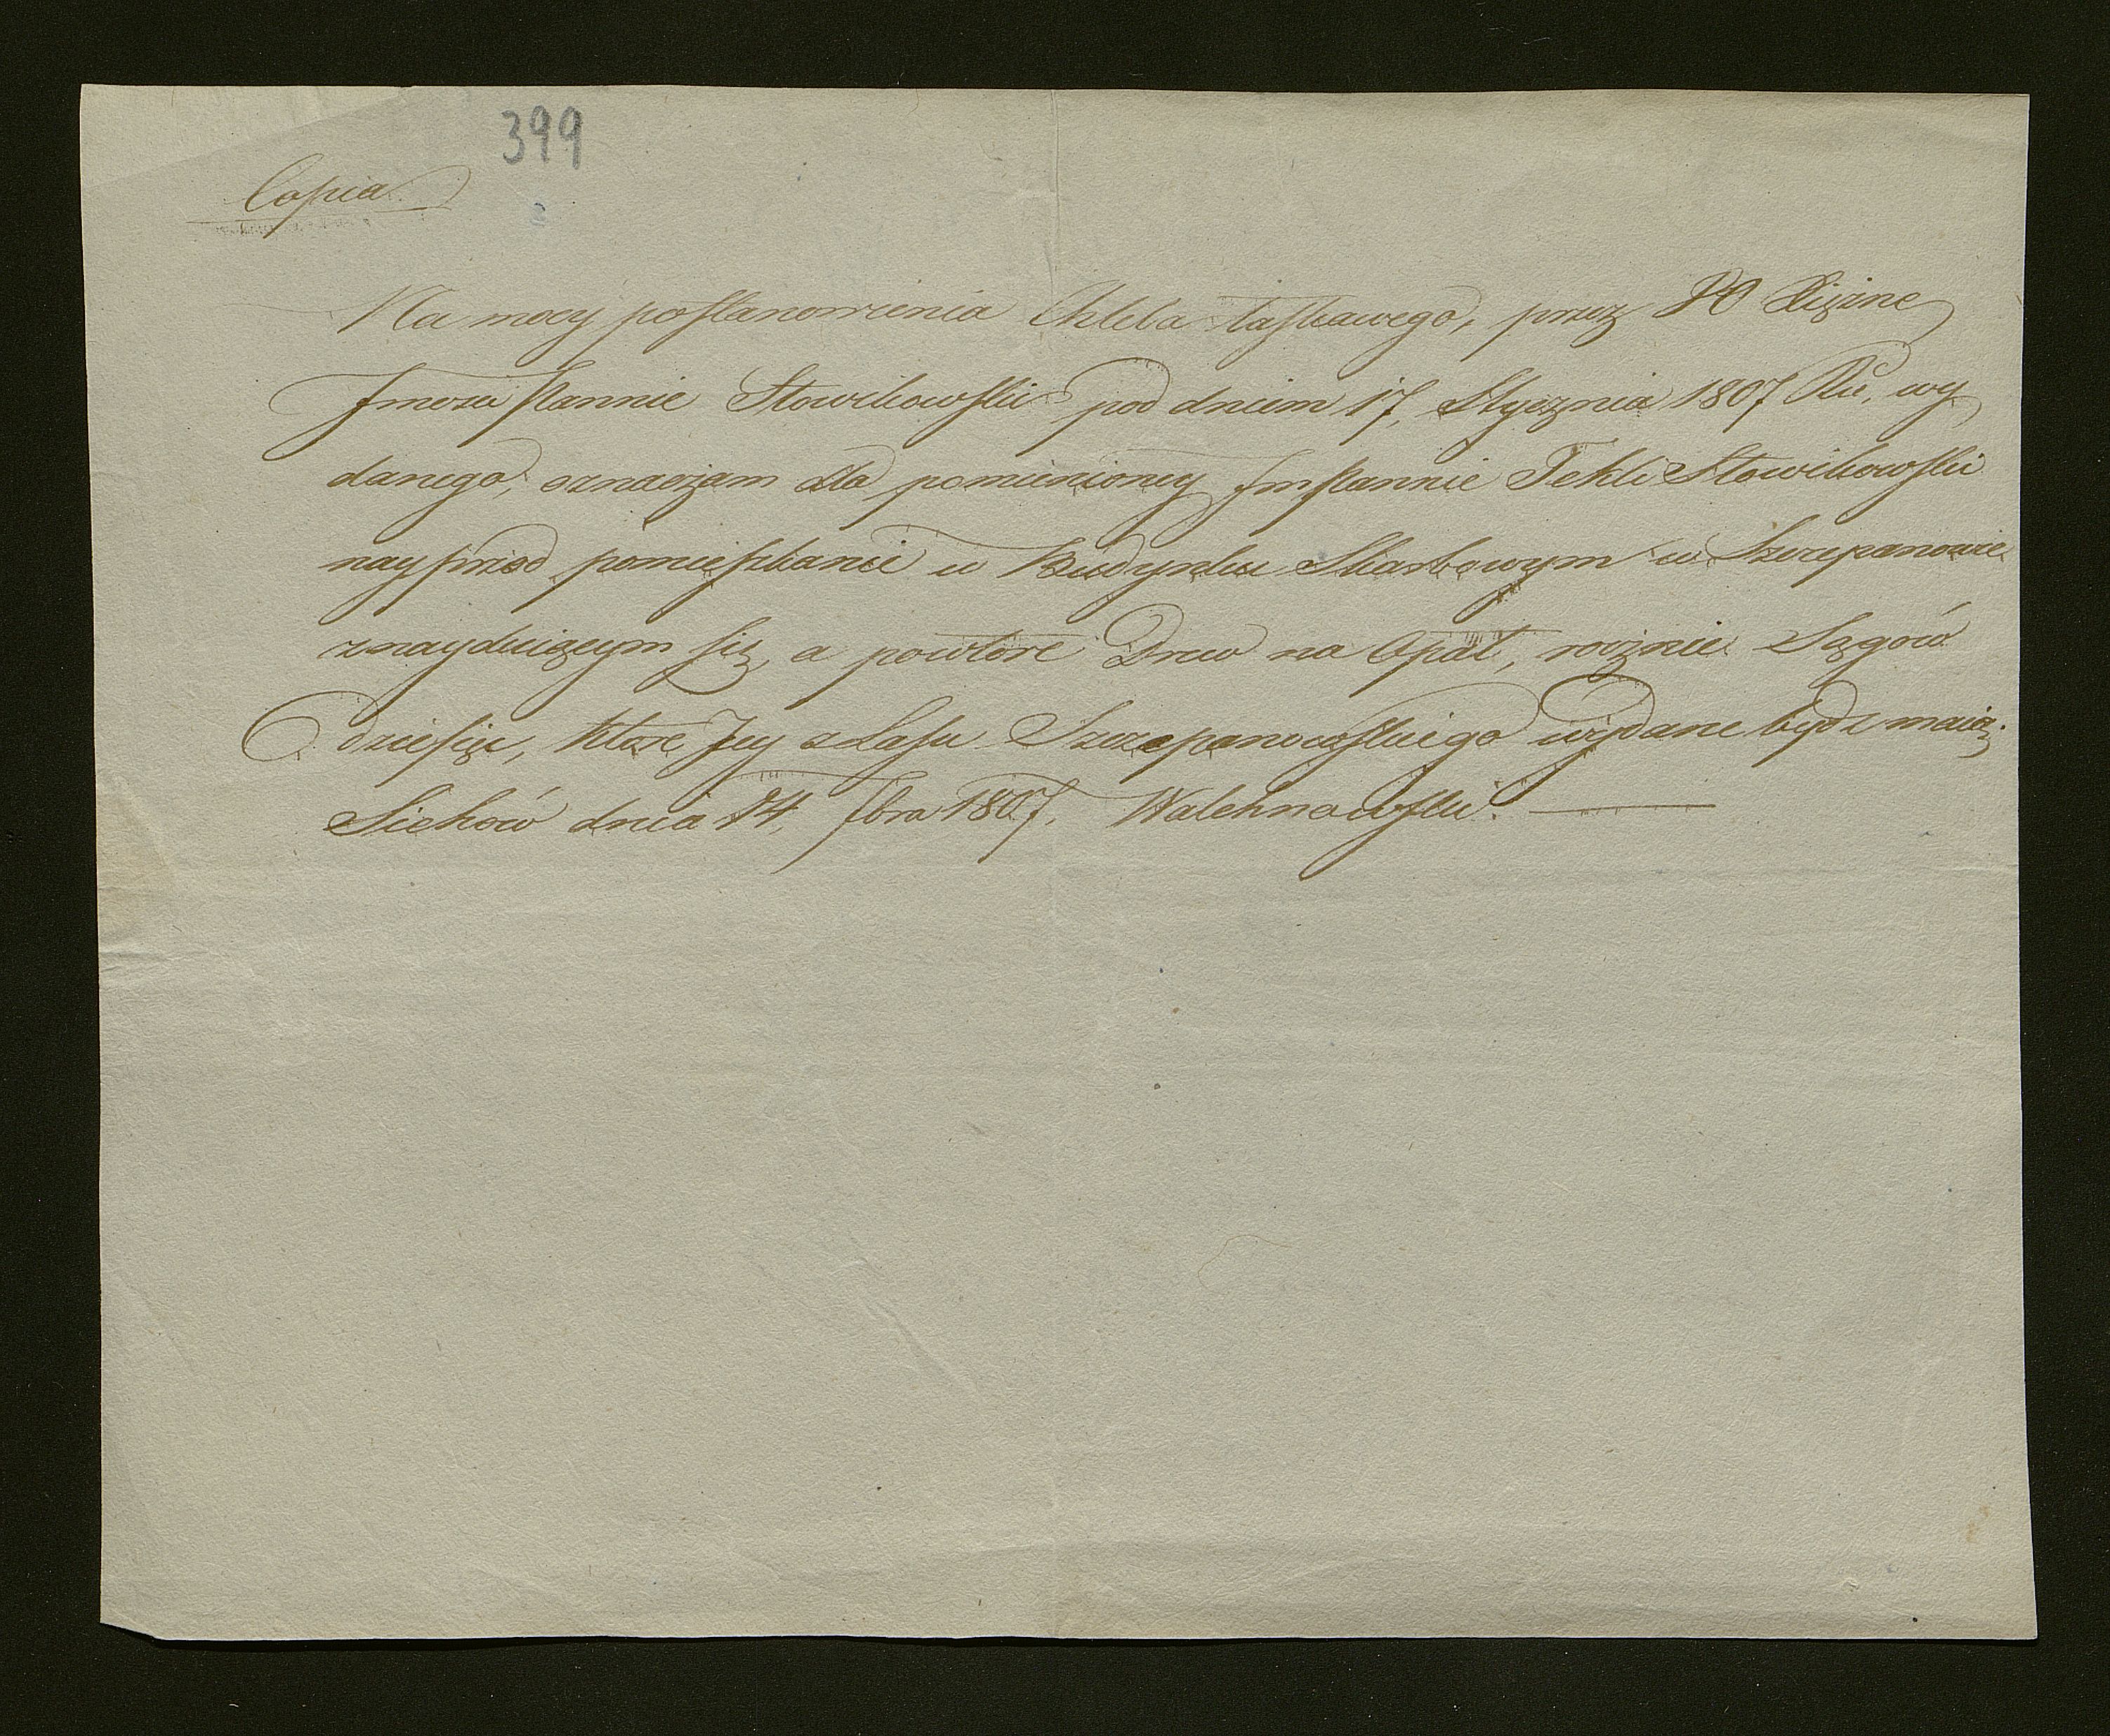 399
Copia
Na mocy postanowienia Chleba łaskawego, przez JO Xiężne
Jmość Pannie Słowikowski pod dniem 17. Stycznia 1807 Ru, wy
danego, oznaczam dla pomienioney Jm Pannie Tekli Słowikowski
nayprzod pomieszkanie w Budynku Skarbowym w Szczepanowie
znayduiącym się, a powtore Drew na Opał, rocznie Sągów
dziesięć, ktore Jey z Lasu Szczepanowskiego wydane bydz maią;
Siehów dnia 14. 7bra 1807. Walchnowski.